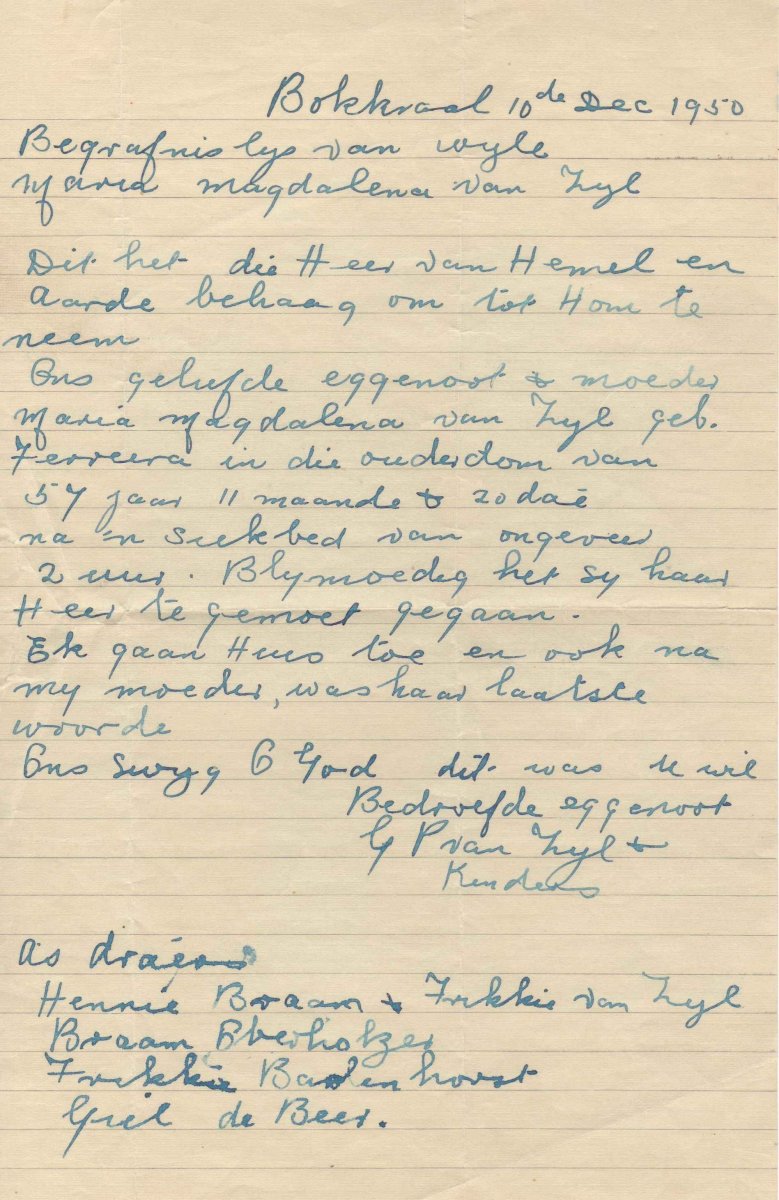 Bokkraal 10de Dec 1950
Begrafnis lys van wyle
Maria Magdalena van Zyl
Dit het die Heer van Hemel en
Aarde behaag om tot Hom te
neem
Ons geliefde eggenoot & moeder
Maria Magdalena van Zyl geb.
Ferreira in die ouderdom van
57 jaar 11 maande & 20 daë
na 'n siekbed van ongeveer
2 uur. Blymoedig het sy haar
Heer te gemoet gegaan.
Ek gaan Huis toe en ook na
my moeder, was haar laatste
woorde
Ons swyg O God dit was u wil
Bedroefde eggenoot
G P van Zyl &
Kinders
As draërs
Hennie Braam & Frikkie van Zyl
Braam Oberholzer
Frikkie Badenhorst
Giel de Beer.